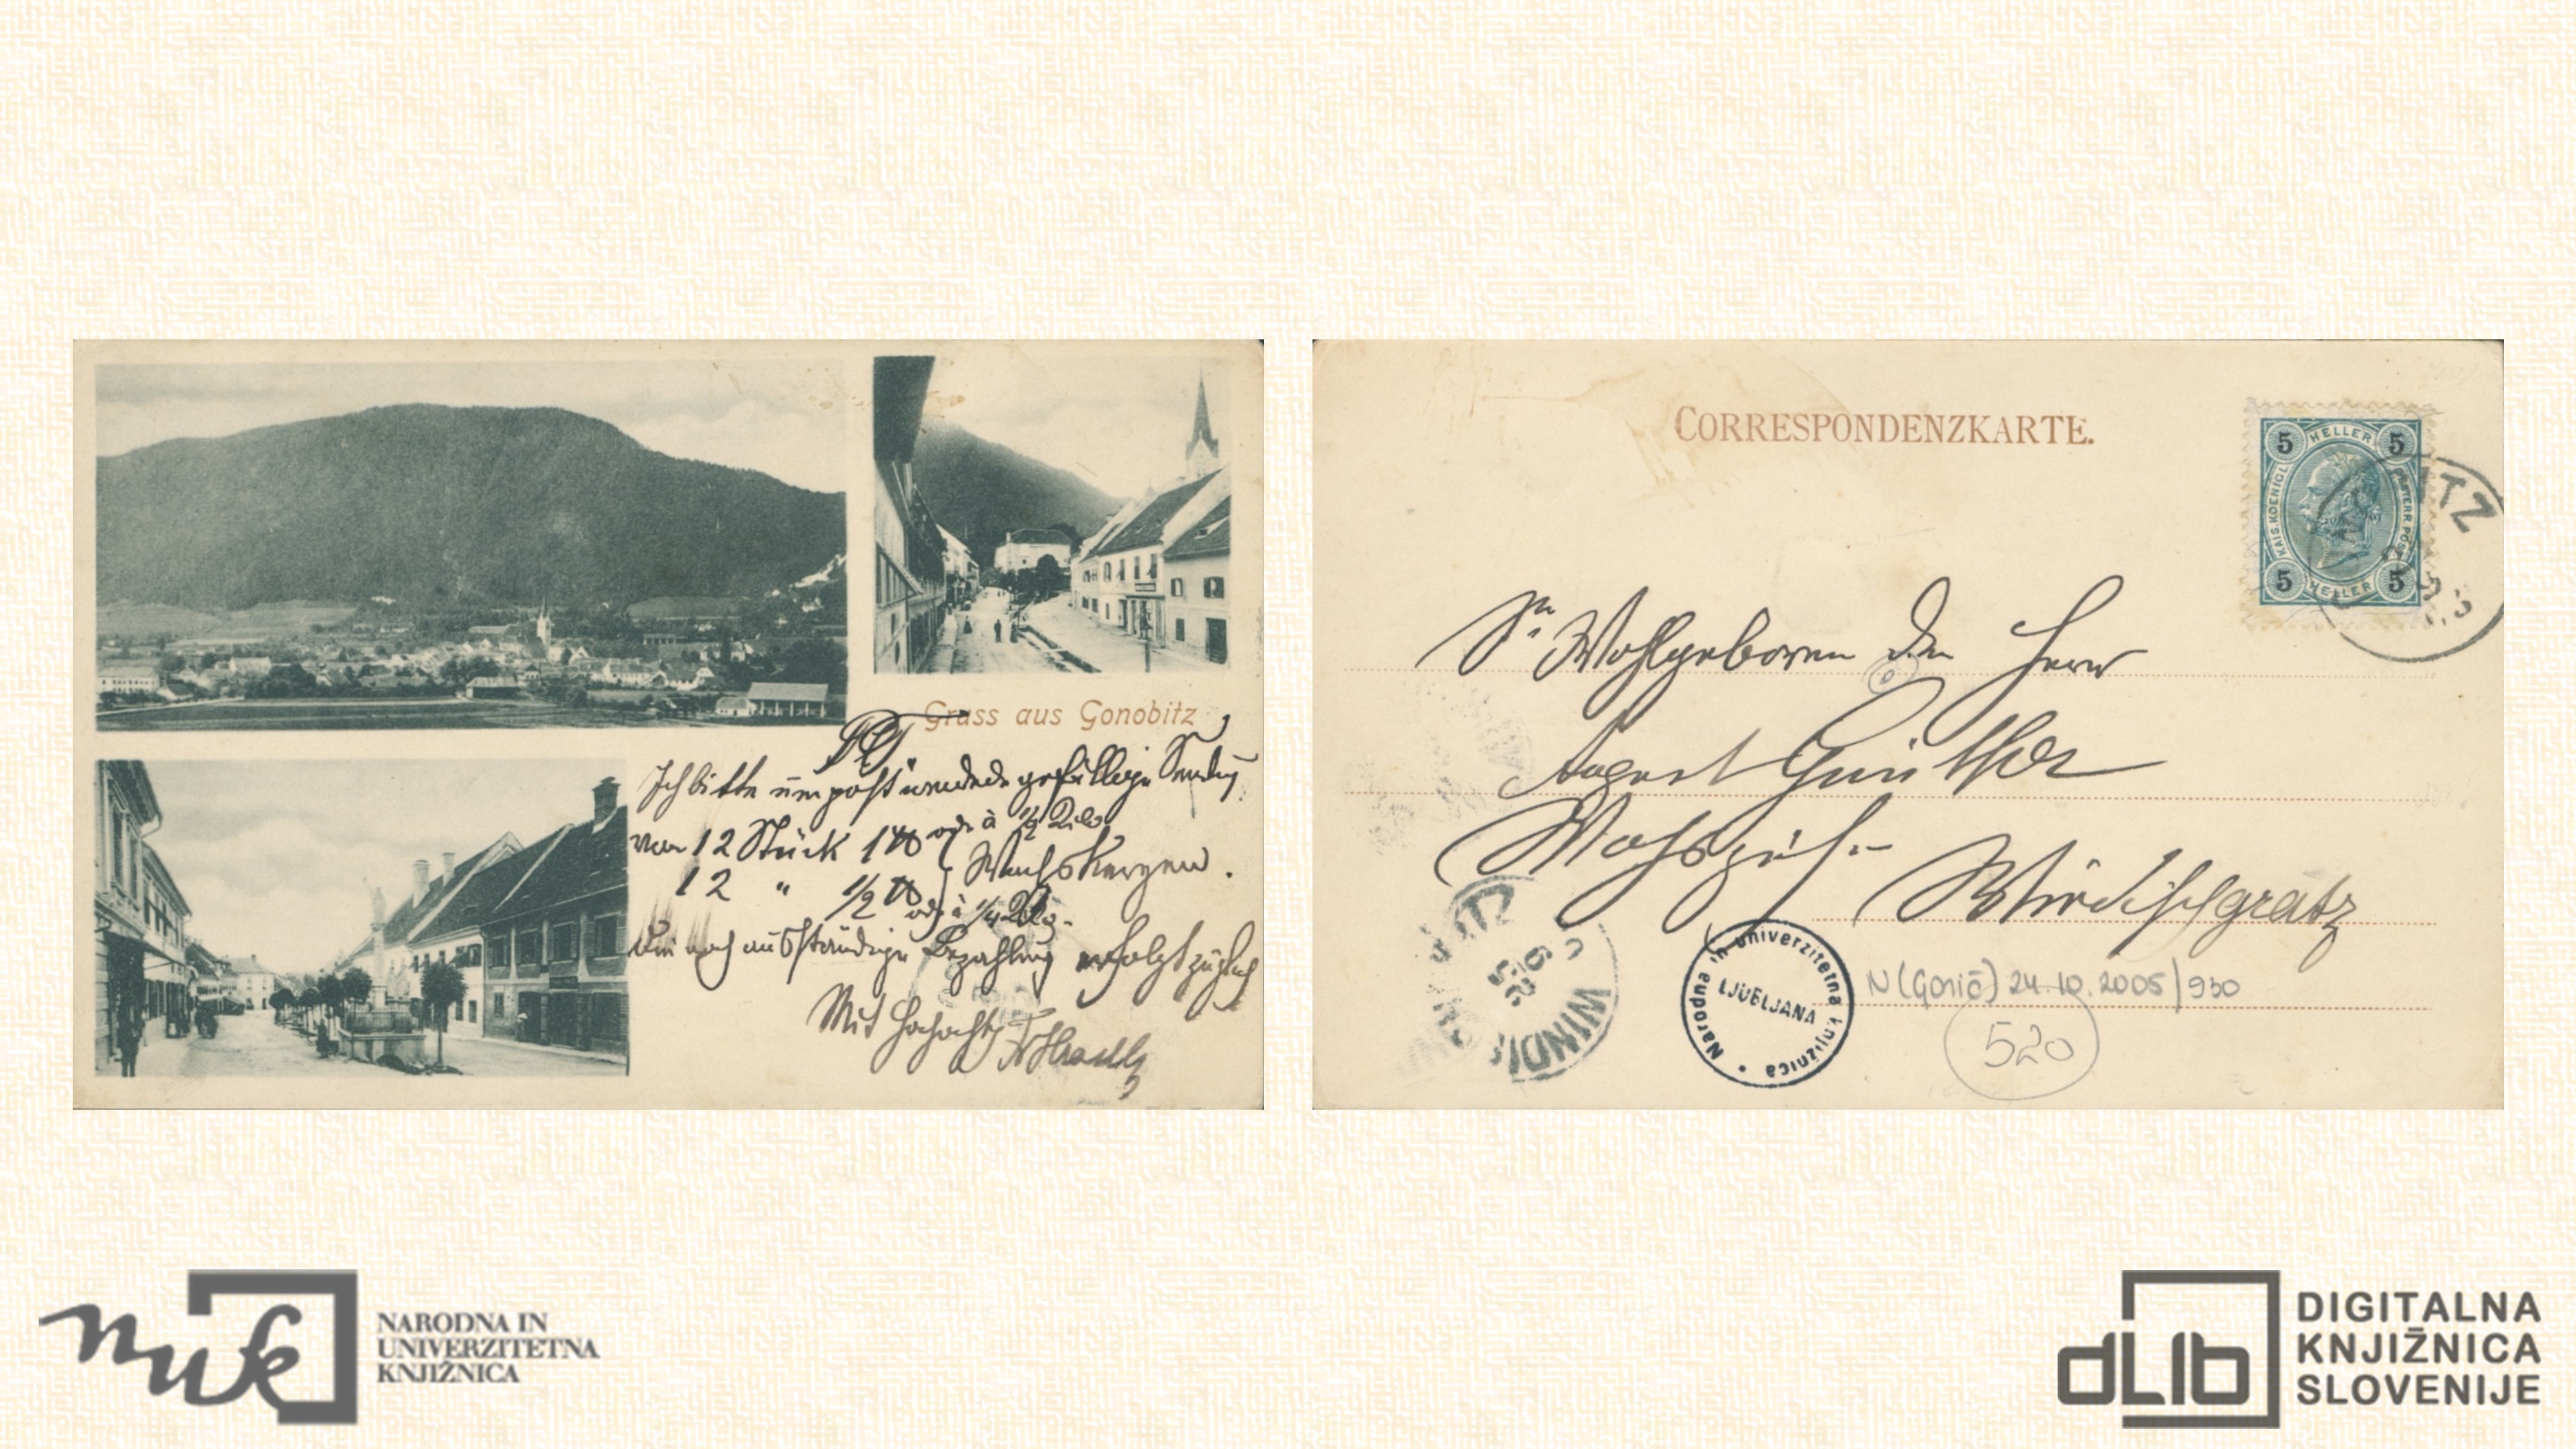 Gruss aus Gonobitz
P.T.
Ich bitte um postwendende gefällige Sendung
von 12 Stück 1 ℔ oder à 1/2 Kilo
12 " 1/2 ℔ oder à 1/4 Kilo
Wachskerzen.
Die noch ausständige Bezahlung erfolgt
Mit
CORRESPONDENZKARTE.
5 HELLER 5
KAIS. KOENIGL. OESTERR. POST
5 HELLER 5
Sr Wohlgeboren den Herrn
August Günther
Windischgratz
WINDISCH
Narodna in univerzitetna knjižnica •
LJUBLJANA
N (Gorič) 24.10.2005/930
520
nuk
NARODNA IN
UNIVERZITETNA
KNJIŽNICA
dLib
DIGITALNA
KNJIŽNICA
SLOVENIJE